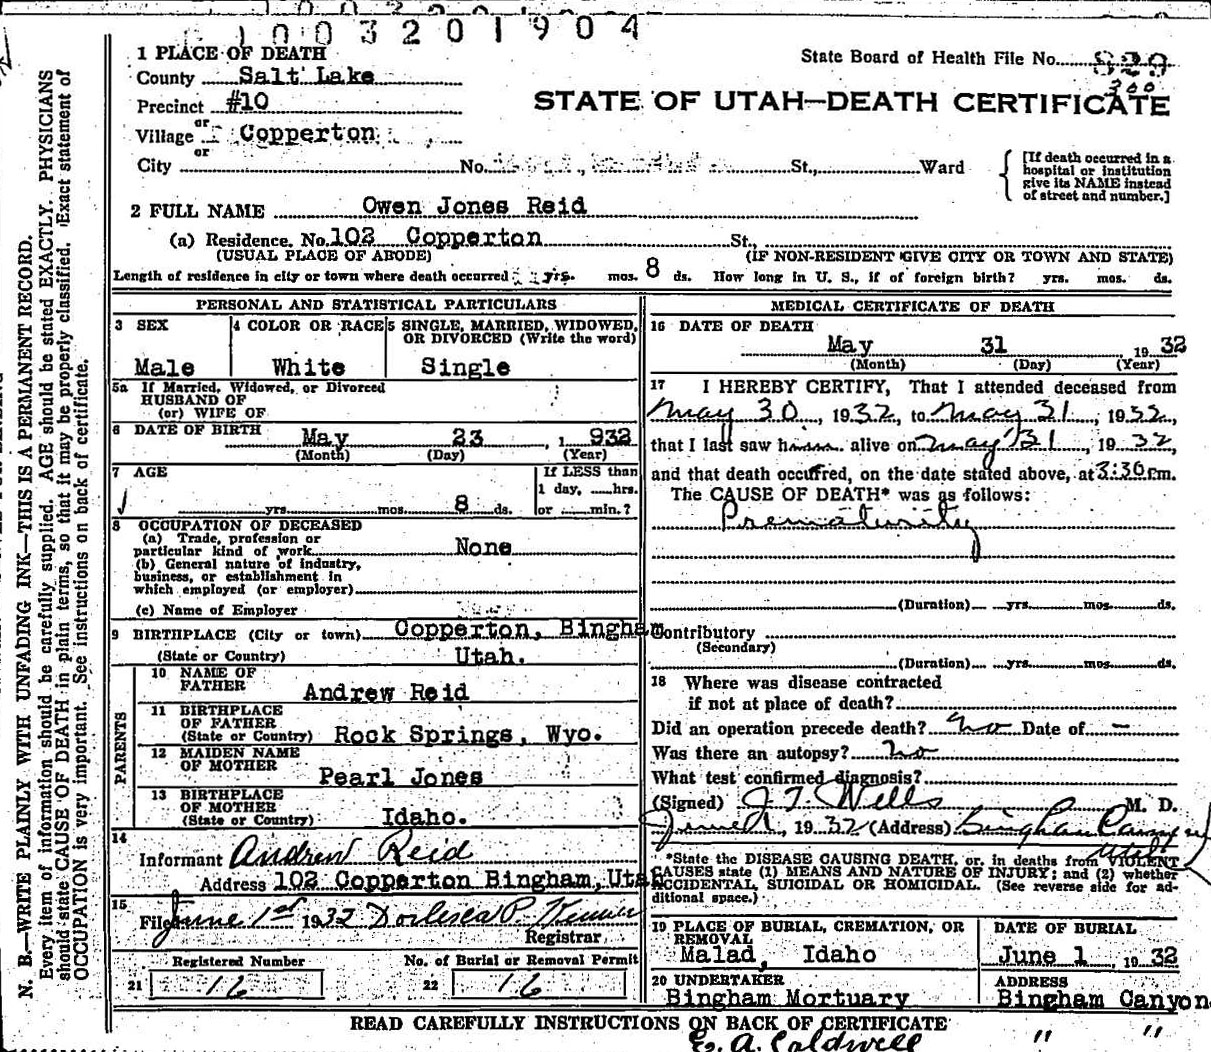 1003201904
1 PLACE OF DEATH
State Board of Health File No.
County Salt Lake
300
Precinct #10
STATE OF UTAH—DEATH CERTIFICATE
or
Village Copperton
or
City No. St., Ward
[If death occurred in a hospital or institution give its NAME instead of street and number.]
2 FULL NAME Owen Jones Reid
(a) Residence. No. 102 Copperton St.,
(USUAL PLACE OF ABODE) (IF NON-RESIDENT GIVE CITY OR TOWN AND STATE)
Length of residence in city or town where death occurred yrs. mos. 8 ds. How long in U. S., if of foreign birth? yrs. mos. ds.
PERSONAL AND STATISTICAL PARTICULARS
3 SEX
Male
4 COLOR OR RACE
White
5 SINGLE, MARRIED, WIDOWED, OR DIVORCED (Write the word)
Single
5a If Married, Widowed, or Divorced
HUSBAND OF
(or) WIFE OF
6 DATE OF BIRTH May 23, 1 932
(Month) (Day) (Year)
7 AGE
If LESS than
1 day, hrs.
yrs. mos. 8 ds. or min.?
8 OCCUPATION OF DECEASED
(a) Trade, profession or
particular kind of work None
(b) General nature of industry,
business, or establishment in
which employed (or employer)
(c) Name of Employer
9 BIRTHPLACE (City or town) Copperton, Bingham
(State or Country) Utah.
PARENTS
10 NAME OF
FATHER Andrew Reid
11 BIRTHPLACE
OF FATHER
(State or Country) Rock Springs, Wyo.
12 MAIDEN NAME
OF MOTHER Pearl Jones
13 BIRTHPLACE
OF MOTHER
(State or Country) Idaho.
14
Informant Andrew Reid
Address 102 Copperton Bingham, Uta
15
Filed June 1st 1932
Registrar
Registered Number No. of Burial or Removal Permit
21 16 22 16
MEDICAL CERTIFICATE OF DEATH
16 DATE OF DEATH
May 31 19 32
(Month) (Day) (Year)
17 I HEREBY CERTIFY, That I attended deceased from
May 30, 1932, to May 31, 1932,
that I last saw him alive on May 31, 1932,
and that death occurred, on the date stated above, at 3:30 P.m.
The CAUSE OF DEATH* was as follows:
Prematurity
(Duration) yrs. mos. ds.
Contributory
(Secondary)
(Duration) yrs. mos. ds.
18 Where was disease contracted
if not at place of death?
Did an operation precede death? No Date of —
Was there an autopsy? No
What test confirmed diagnosis?
(Signed) J. T. Wells M. D.
June 1, 1932 (Address) Bingham Canyon
Utah
*State the DISEASE CAUSING DEATH, or, in deaths from VIOLENT
CAUSES state (1) MEANS AND NATURE OF INJURY; and (2) whether
ACCIDENTAL, SUICIDAL OR HOMICIDAL. (See reverse side for ad-
ditional space.)
19 PLACE OF BURIAL, CREMATION, OR
REMOVAL
Malad, Idaho
DATE OF BURIAL
June 1, 19 32
20 UNDERTAKER
Bingham Mortuary
ADDRESS
Bingham Canyon
READ CAREFULLY INSTRUCTIONS ON BACK OF CERTIFICATE
" "
E. A. Caldwell
N. B.—WRITE PLAINLY WITH UNFADING INK—THIS IS A PERMANENT RECORD.
Every item of information should be carefully supplied. AGE should be stated EXACTLY. PHYSICIANS
should state CAUSE OF DEATH in plain terms, so that it may be properly classified. Exact statement of
OCCUPATION is very important. See instructions on back of certificate.